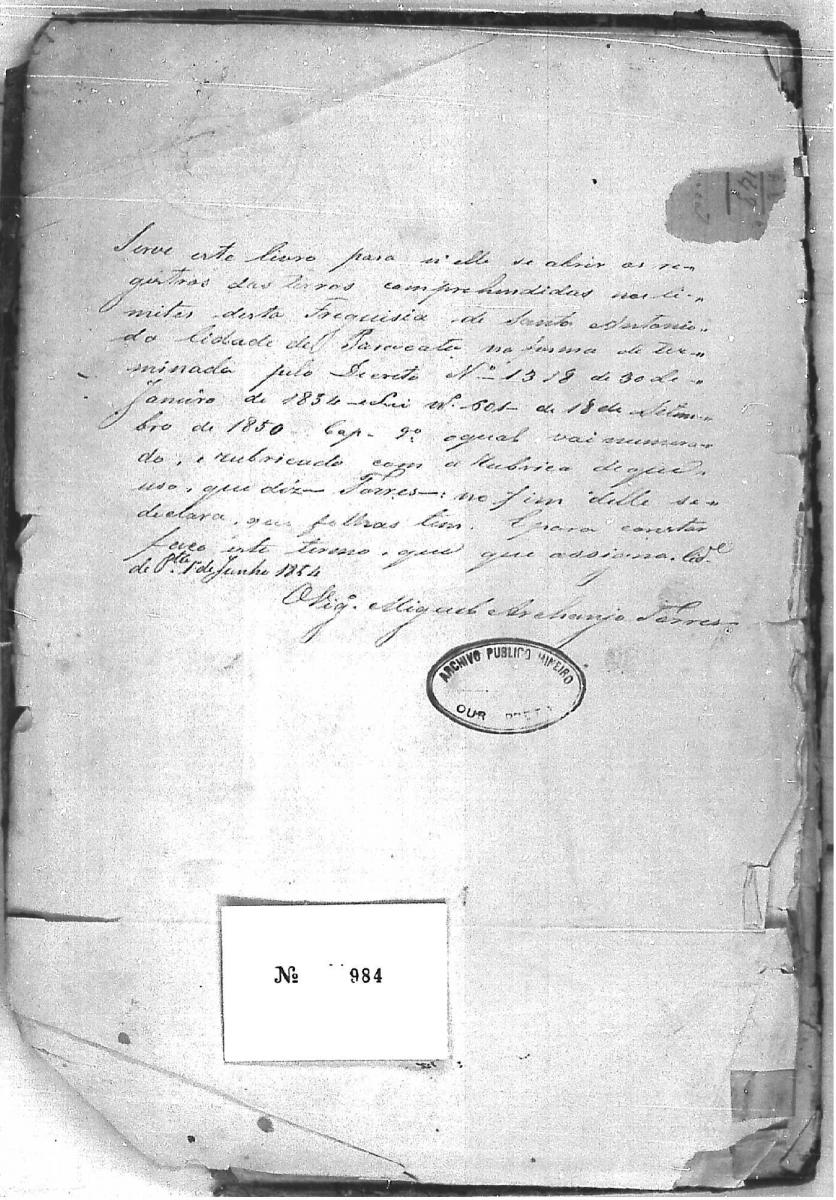 Serve este livro para n'elle se abrir os re-
gistros das terras comprehendidas nos li-
mites desta Freguisia de Santo Antonio
da Cidade de Paracatu na forma deter-
minada pelo Decreto Nº 1318 de 30 de
Janeiro de 1854 e Lei Nº 601 de 18 de Setem-
bro de 1850 Cap. 9º o qual vai numera-
do, e rubricado com a Rubrica de que
uso, que diz - Torres -: no fim delle se
declara, que folhas tem. E para constar
faço este termo, que assigno. Cid.e
de 1º de Junho 1854
O Vigº. Miguel Archanjo Torres
ARCHIVO PUBLICO MINEIRO
OUR PRETO
Nº 984